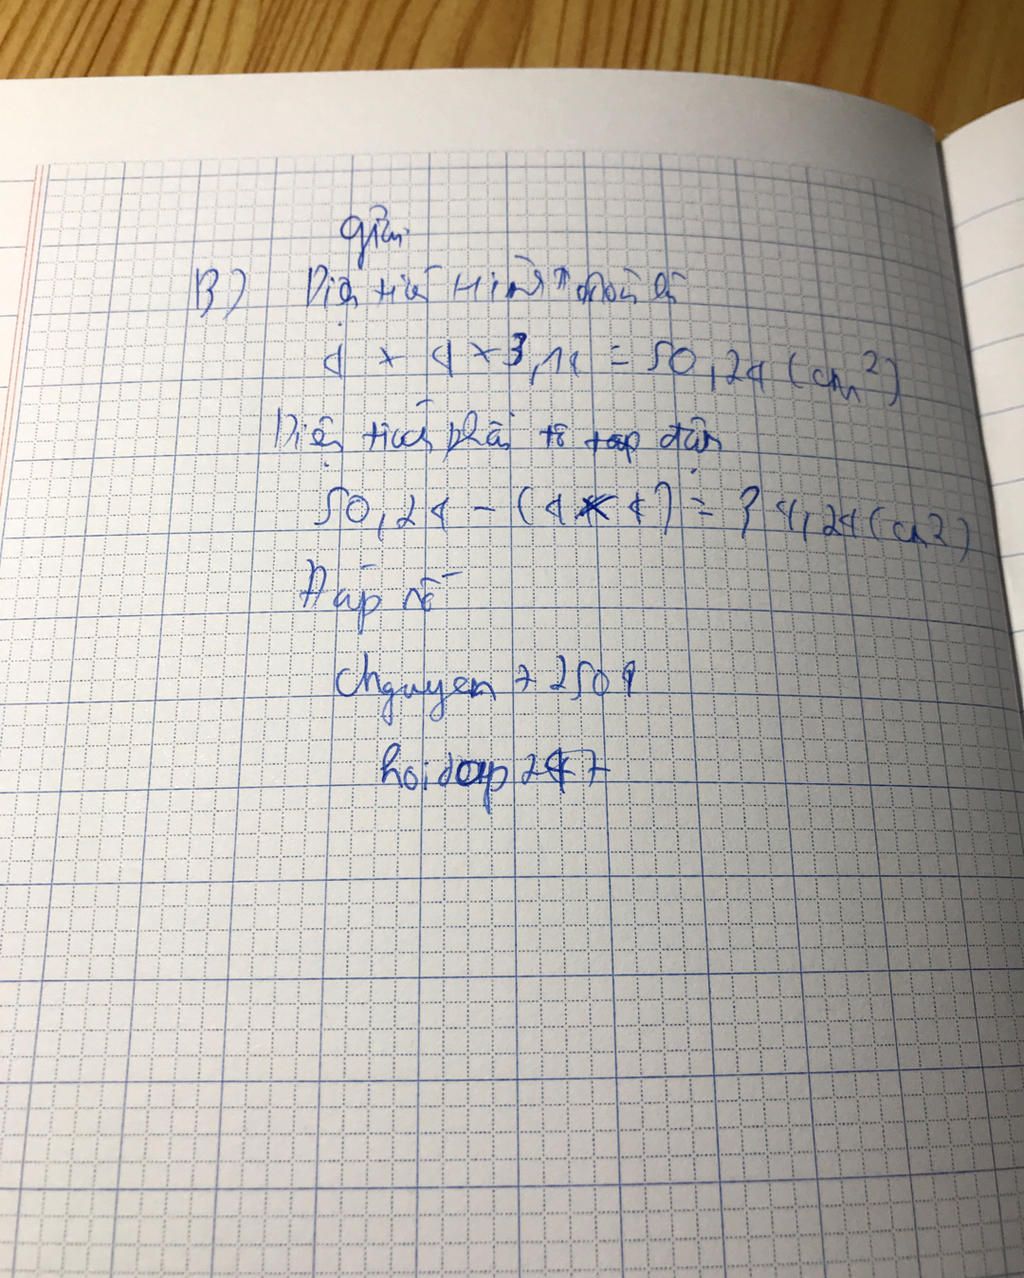 giải
B) Diện tích hình tròn là
4 x 4 x 3,14 = 50,24 (cm²)
Diện tích phần tô đậm
50,24 - (4 x 4) = 34,24 (cm2)
Đáp số
Chguyen + 2509
hoidap247